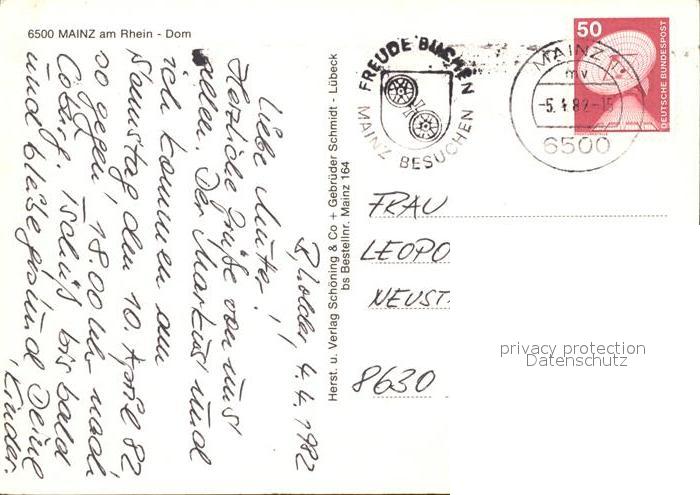 6500 MAINZ am Rhein - Dom
50
DEUTSCHE BUNDESPOST
MAINZ
mv
-5.4.82-15
6500
FREUDE BUCHEN
MAINZ BESUCHEN
Herst. u. Verlag Schöning & Co + Gebrüder Schmidt - Lübeck
bs Bestellnr. Mainz 164
4.4.1982
Liebe Mutter!
Herzliche Grüße von uns
allen. Der Markus und
ich kommen am
Samstag, den 10. April 82
so gegen 18.00 Uhr nach
Cobg. Tschüß bis bald
und bleibe gesund Deine
Kinder.
FRAU
LEOPO
NEUST.
8630
privacy protection
Datenschutz